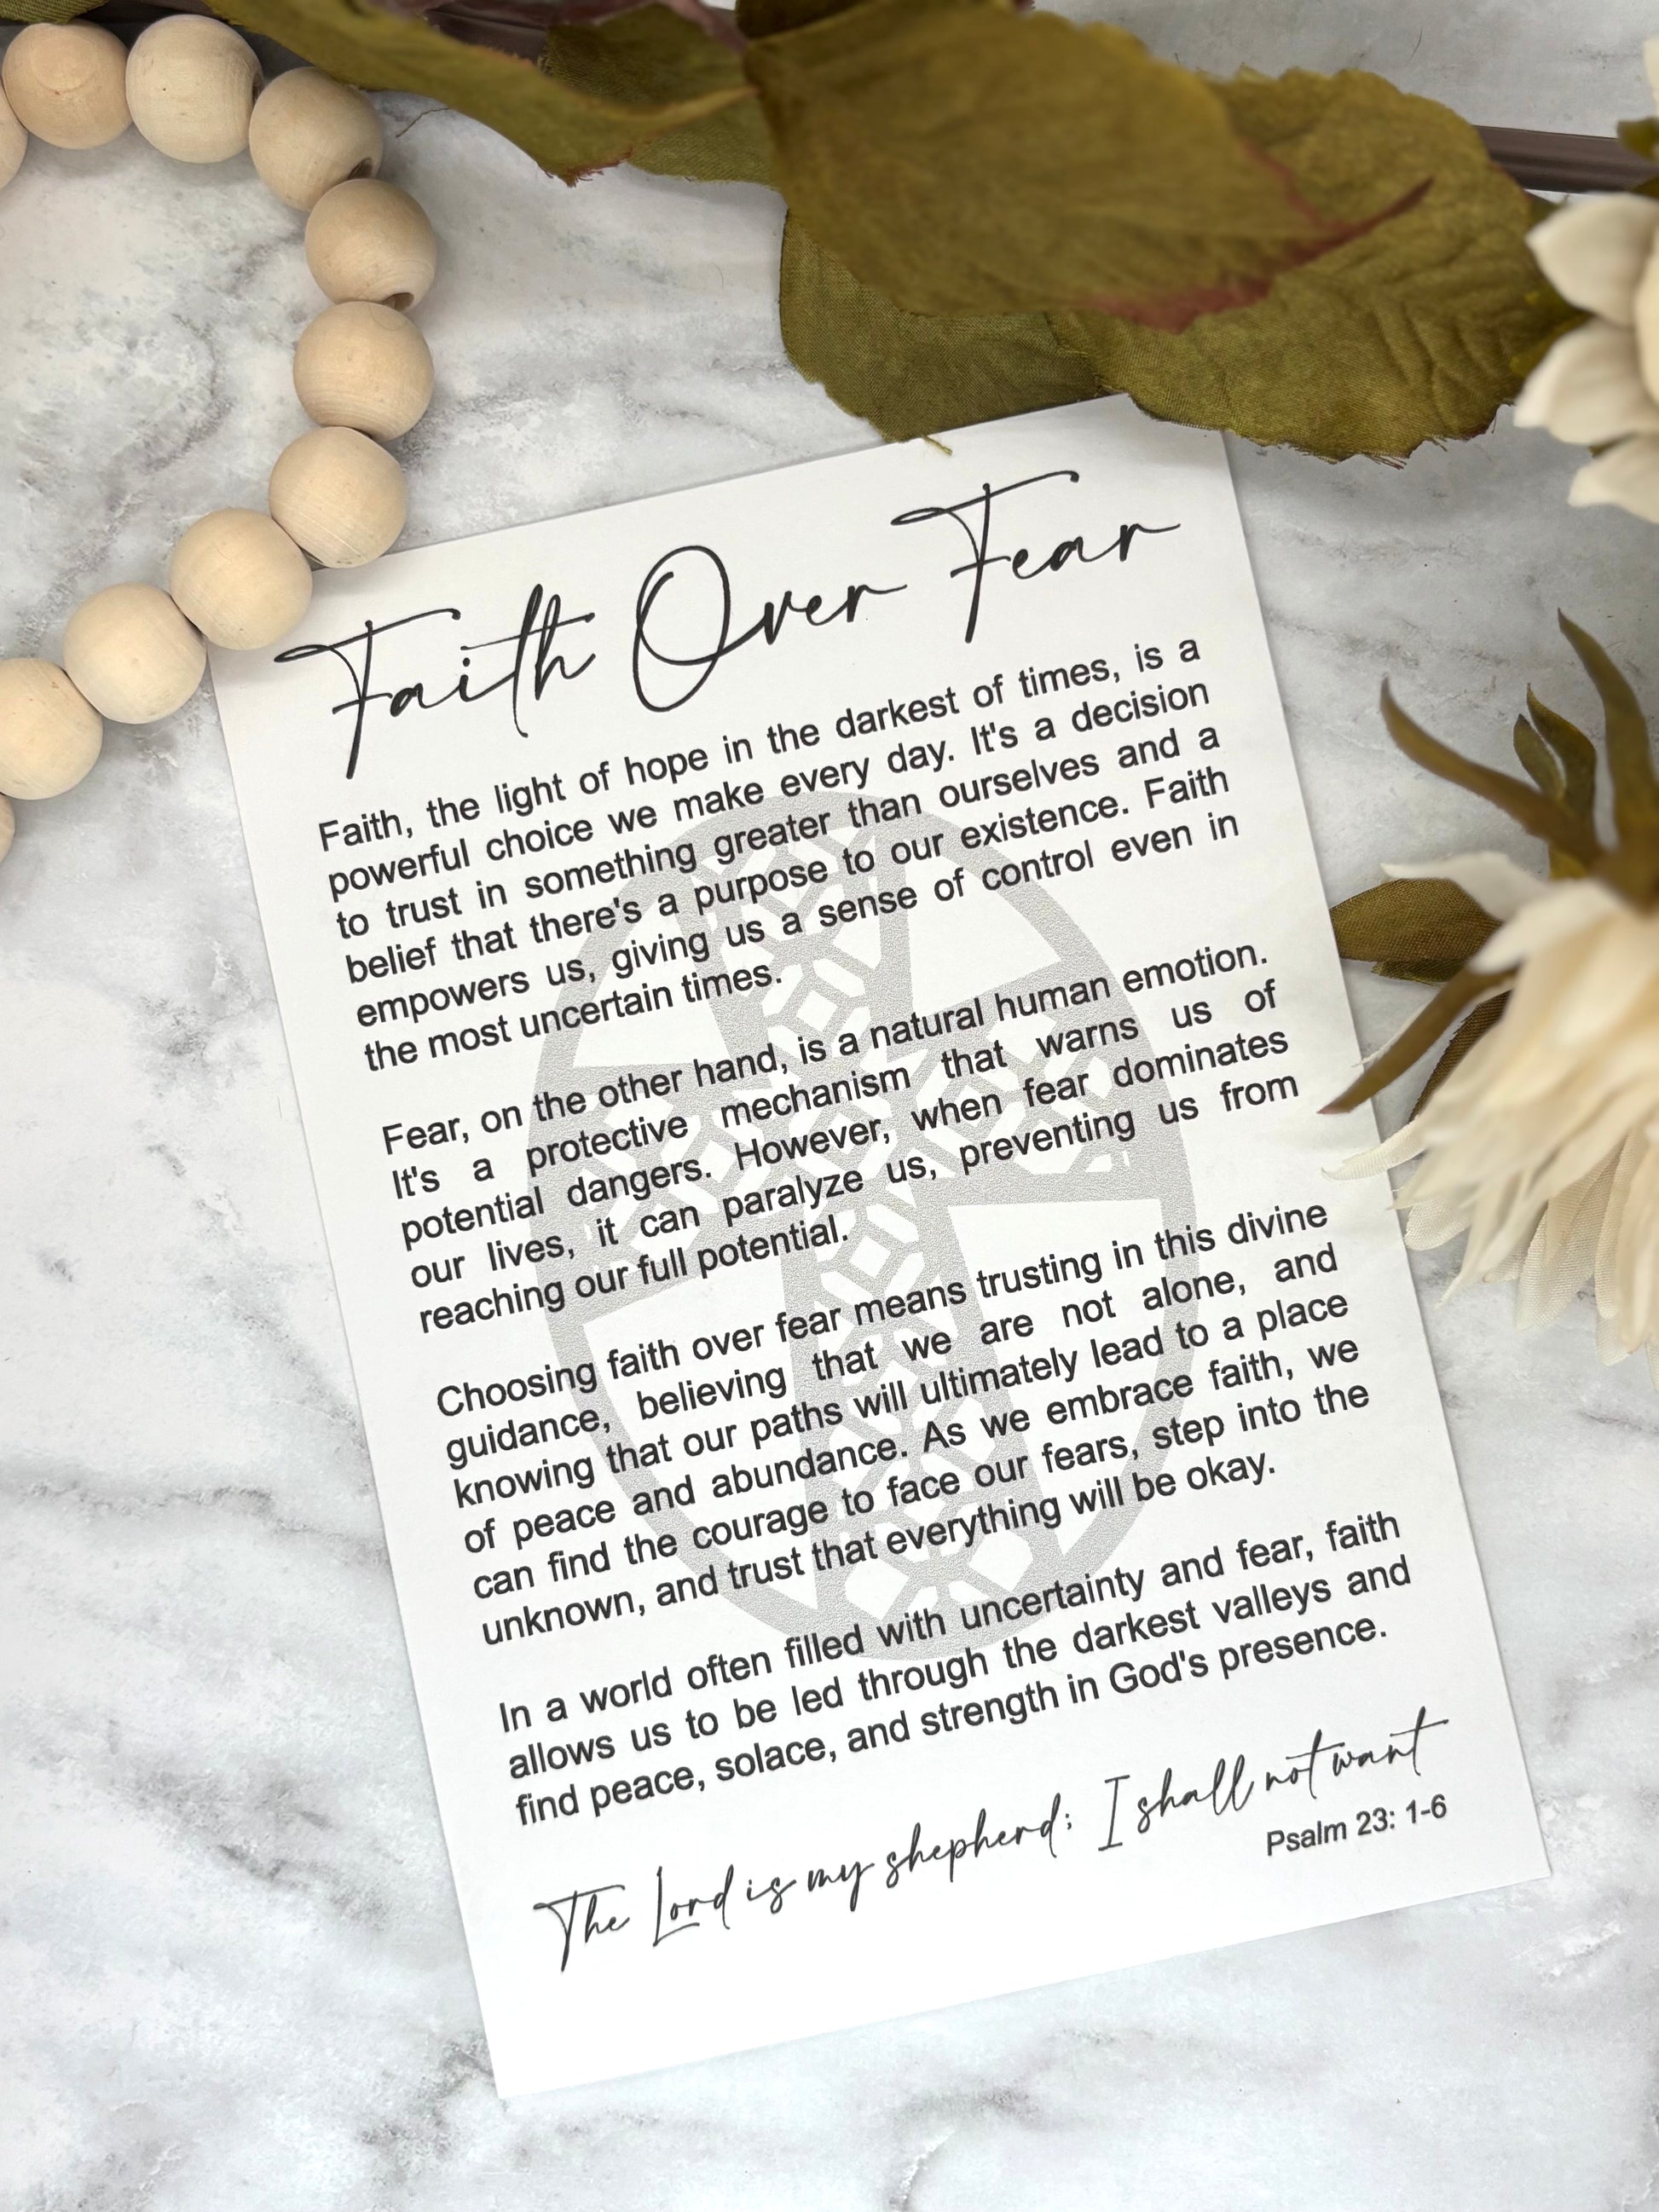 Faith Over Fear
Faith, the light of hope in the darkest of times, is a
powerful choice we make every day. It's a decision
to trust in something greater than ourselves and a
belief that there's a purpose to our existence. Faith
empowers us, giving us a sense of control even in
the most uncertain times.
Fear, on the other hand, is a natural human emotion.
It's a protective mechanism that warns us of
potential dangers. However, when fear dominates
our lives, it can paralyze us, preventing us from
reaching our full potential.
Choosing faith over fear means trusting in this divine
guidance, believing that we are not alone, and
knowing that our paths will ultimately lead to a place
of peace and abundance. As we embrace faith, we
can find the courage to face our fears, step into the
unknown, and trust that everything will be okay.
In a world often filled with uncertainty and fear, faith
allows us to be led through the darkest valleys and
find peace, solace, and strength in God's presence.
The Lord is my shepherd; I shall not want
Psalm 23: 1-6